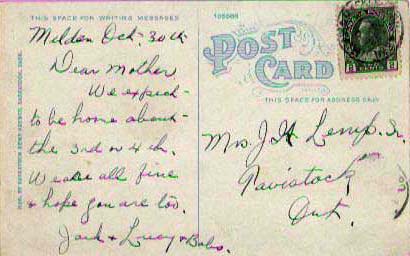 THIS SPACE FOR WRITING MESSAGES
Milden Oct. 30th
Dear Mother
We expect
to be home about
the 3rd or 4th.
We are all fine
& hope you are too.
Jack & Lucy & Babs.
POST CARD
THIS SPACE FOR ADDRESS ONLY
Mrs J H Lemp. Sr.
Tavistock
Ont.